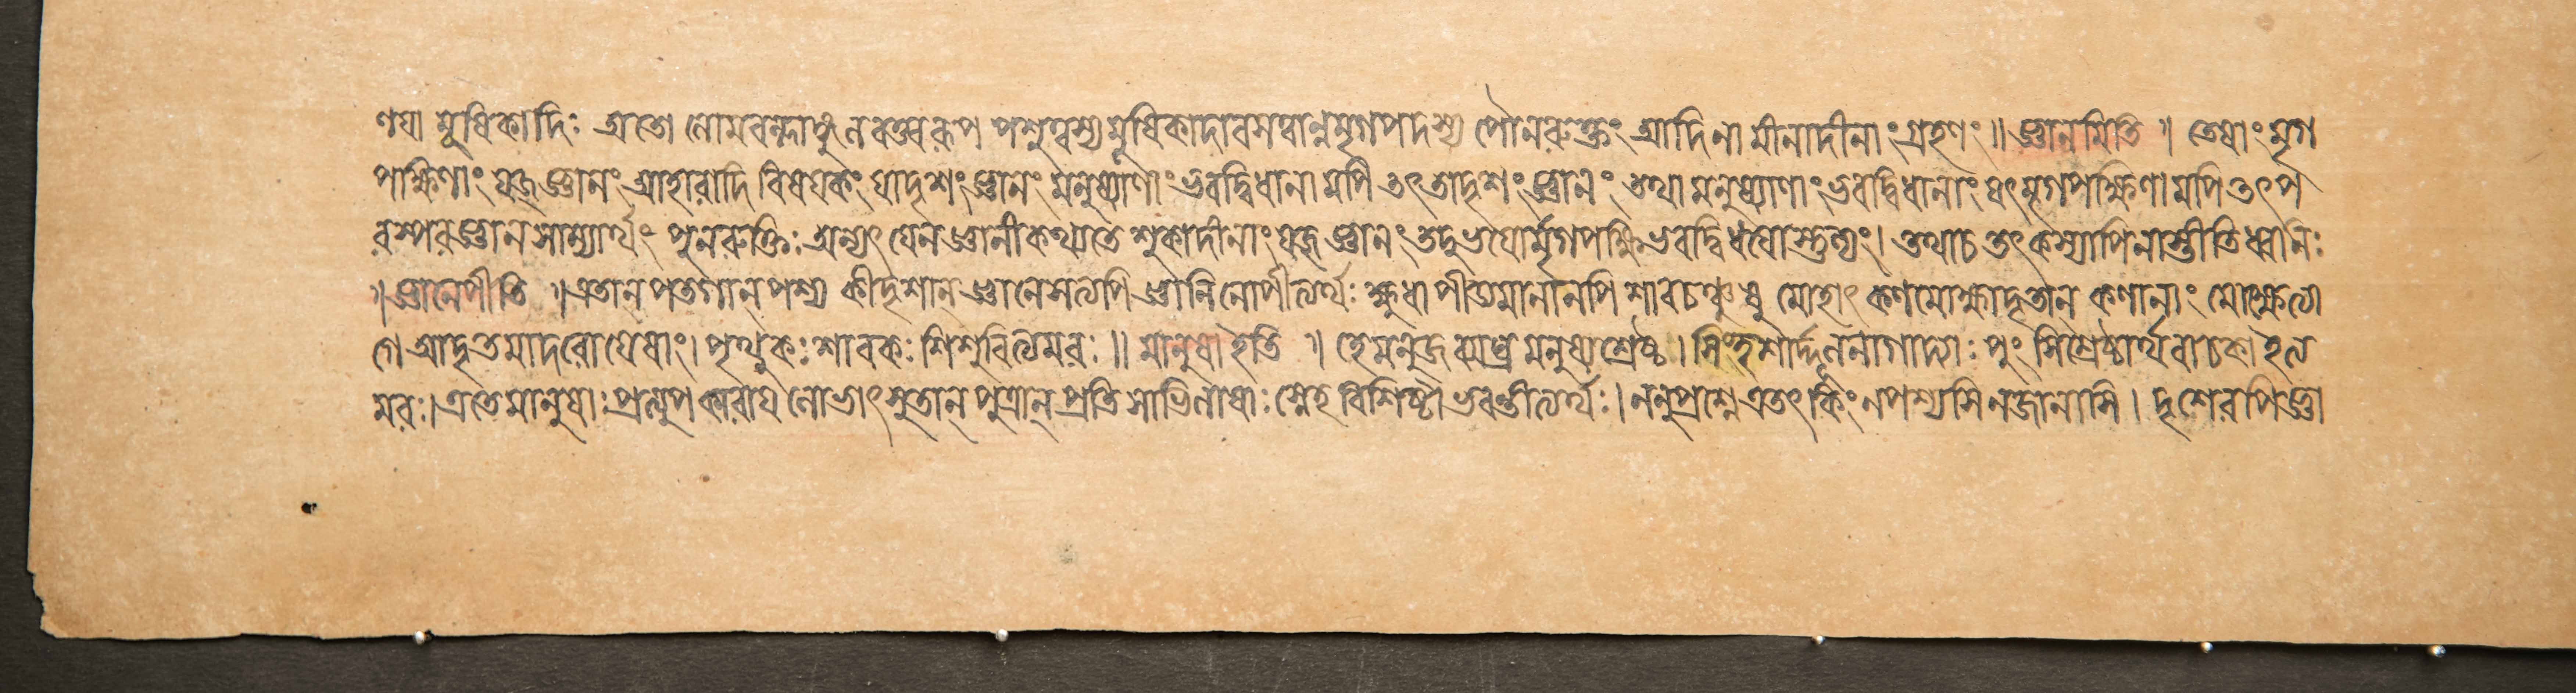 ণযা মূষিকাদিঃ অতো লোমবল্লাঙ্গুলবত্ত্বরূপ পশুত্বস্য মূষিকাদাবসত্বান্নমৃগপদস্য পৌনরুক্তং আদিনা মীনাদীনাং গ্রহণং ॥ জ্ঞানমিতি ॥ তেষাং মৃগ
পক্ষিণাং যজ্ জ্ঞানং আহারাদি বিষযকং যাদৃশং জ্ঞানং মনুষ্যাণাং ভবদ্বিধানামপী তৎ তাদৃশং জ্ঞানং তথা মনুষ্যাণাং ভবদ্বিধানাং যৎ মৃগপক্ষিণামপি তৎ প
রস্পরজ্ঞান সাম্যার্থং পুনরুক্তিঃ অন্যৎ যেন জ্ঞানী কথ্যতে শুকাদীনাং যজ্ জ্ঞানং তদুভযোর্মৃগপক্ষি ভবদ্বিধযোস্তুল্যং। তথাচ তৎ কস্যাপি নাস্তীতি ধ্বনিঃ
॥ জ্ঞানেপীতি ॥ এতান্ পতগান্ পশ্য কীদৃশান্ জ্ঞানেসত্যপি জ্ঞানিনোপীত্যর্থঃ ক্ষুধা পীড্যমানানপি শাবচঞ্চুষু মোহাৎ কণমোক্ষাদৃতান্ কণানাং মোক্ষেত্যা
গে আদৃতমাদরো যেষাং। পৃথুকঃ শাবকঃ শিশুরিত্যমরঃ ॥ মানুষা ইতি ॥ হে মনুজব্যাঘ্র মনুষ্যশ্রেষ্ঠ। সিংহশার্দ্দূলনাগাদ্যাঃ পুংসি শ্রেষ্ঠার্থবাচকা ইত্য
মরঃ। এতে মানুষাঃ প্রত্যুপকারায লোভাৎ সুতান্ পুত্রান্ প্রতি সাভিলাষাঃ স্নেহ বিশিষ্টা ভবন্তীত্যর্থঃ। ননু প্রশ্নে এতৎ কিং ন পশ্যসি ন জানাসি। দৃশেরপি জ্ঞা